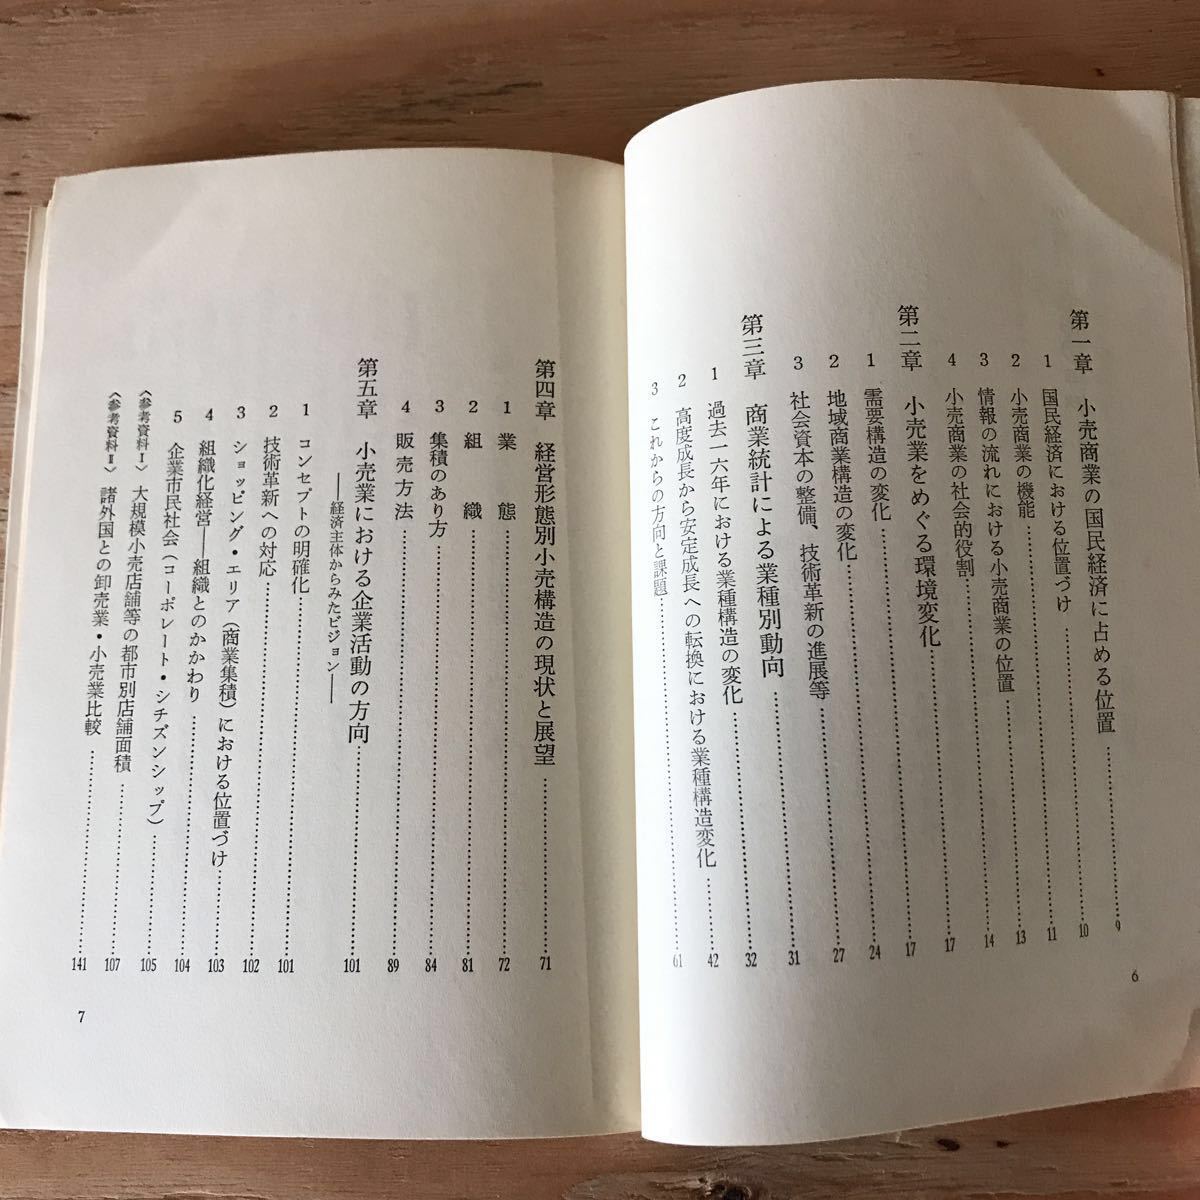 第一章　小売商業の国民経済に占める位置……9
1　国民経済における位置づけ……10
2　小売商業の機能……11
3　情報の流れにおける小売商業の位置……13
4　小売商業の社会的役割……14
第二章　小売業をめぐる環境変化……17
1　需要構造の変化……17
2　地域商業構造の変化……24
3　社会資本の整備、技術革新の進展等……27
第三章　商業統計による業種別動向……31
1　過去一六年における業種構造の変化……32
2　高度成長から安定成長への転換における業種構造変化……42
3　これからの方向と課題……61
6
第四章　経営形態別小売構造の現状と展望……71
1　業　態……72
2　組　織……81
3　集積のあり方……84
4　販売方法……89
第五章　小売業における企業活動の方向……101
――経済主体からみたビジョン――
1　コンセプトの明確化……101
2　技術革新への対応……102
3　ショッピング・エリア（商業集積）における位置づけ……103
4　組織化経営――組織とのかかわり……104
5　企業市民社会（コーポレート・シチズンシップ）……105
〈参考資料Ⅰ〉　大規模小売店舗等の都市別店舗面積……107
〈参考資料Ⅱ〉　諸外国との卸売業・小売業比較……141
7